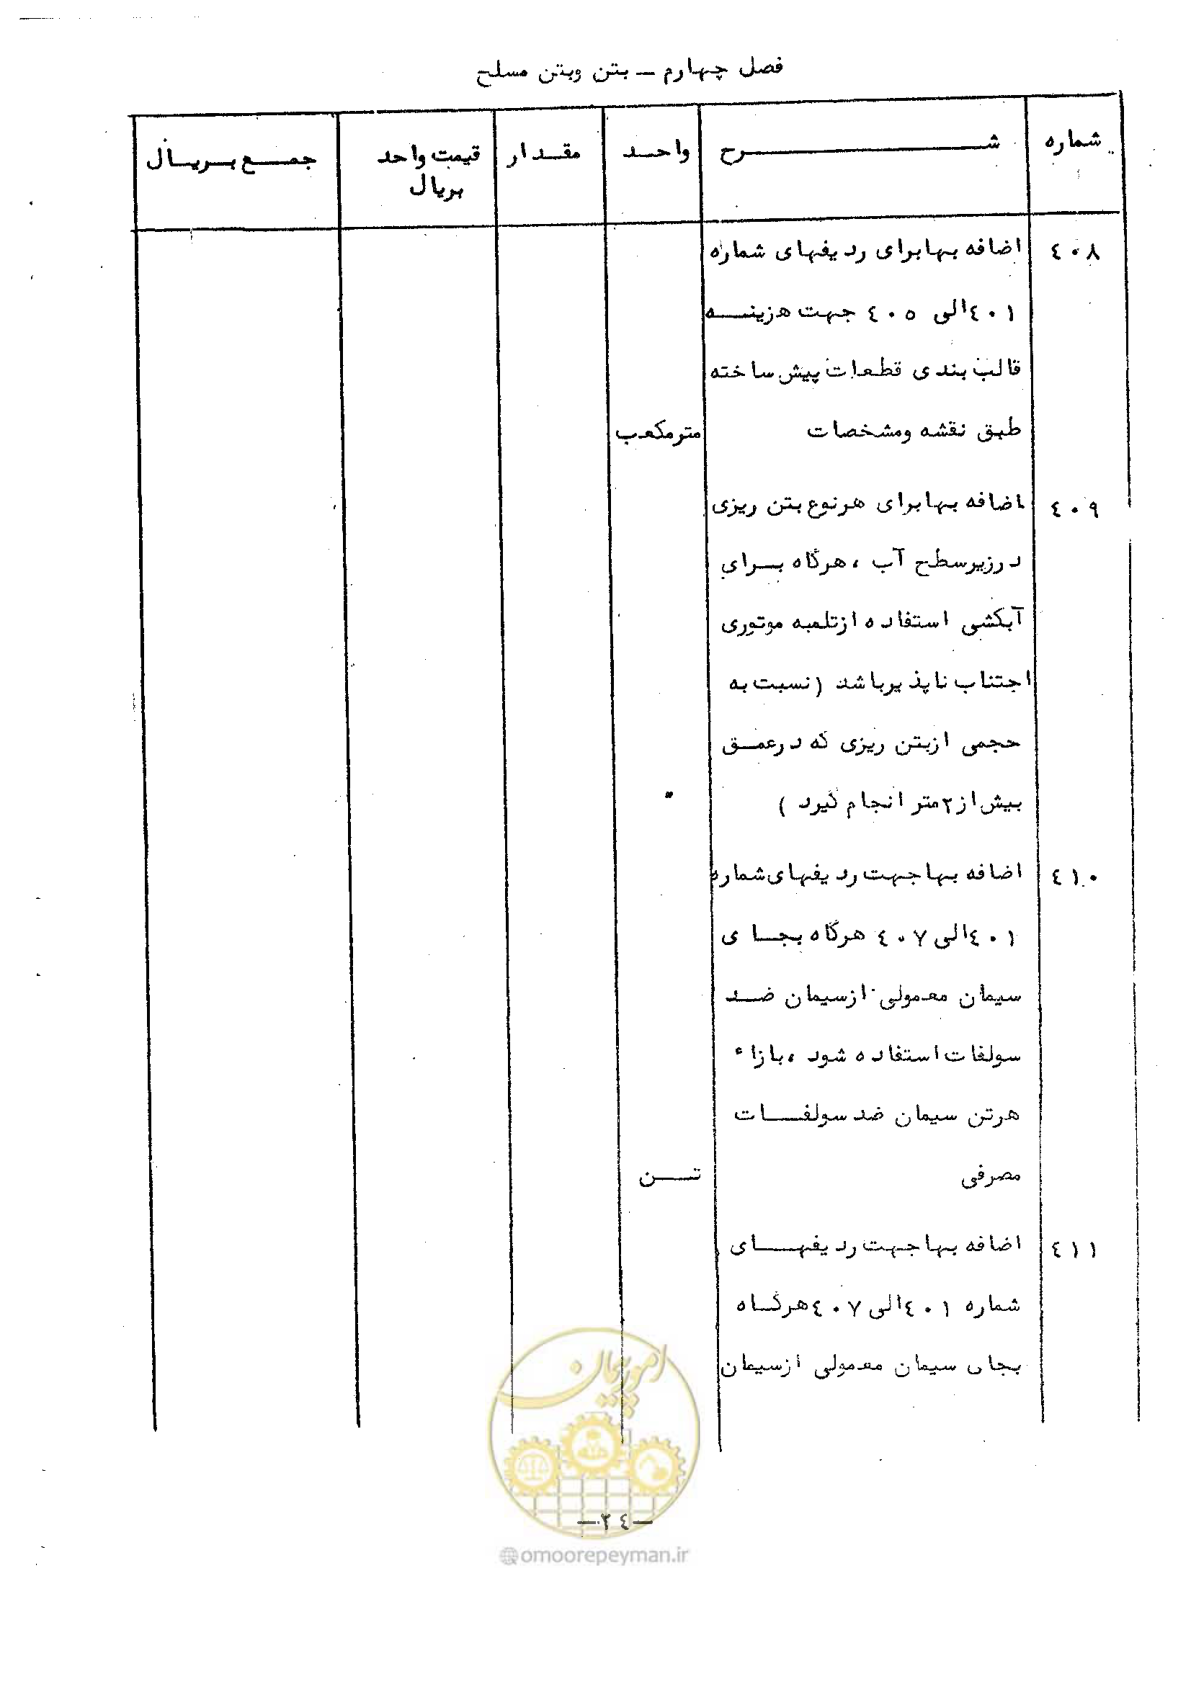 فصل چهارم ـ بتن وبتن مسلح
شماره شرح واحد مقدار قیمت واحد بریال جمع بریال
٤٠٨ اضافه بهابرای ردیفهای شماره
٤٠١ الی ٤٠٥ جهت هزینه
قالب بندی قطعات پیش ساخته
طبق نقشه ومشخصات مترمکعب
٤٠٩ اضافه بهابرای هرنوع بتن ریزی
درزیرسطح آب ، هرگاه برای
آبکشی استفاده ازتلمبه موتوری
اجتناب ناپذیرباشد (نسبت به
حجمی ازبتن ریزی که درعمق
بیش از ۲متر انجام گیرد ) "
٤١٠ اضافه بهاجهت ردیفهای شماره
٤٠١ الی ٤٠٧ هرگاه بجای
سیمان معمولی ازسیمان ضد
سولفات استفاده شود ،بازاء
هرتن سیمان ضد سولفات
مصرفی تن
٤١١ اضافه بهاجهت ردیفهای
شماره ٤٠١ الی ٤٠٧ هرگاه
بجای سیمان معمولی ازسیمان
امور پیمان
—٢٤—
@omoorepeyman.ir